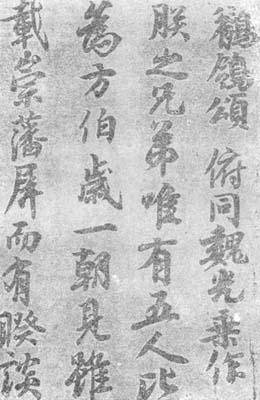 鶺鴒頌 俯同魏光乗作
朕之兄弟唯有五人比
為方伯歳一朝見雖
載崇藩屏而有睽談